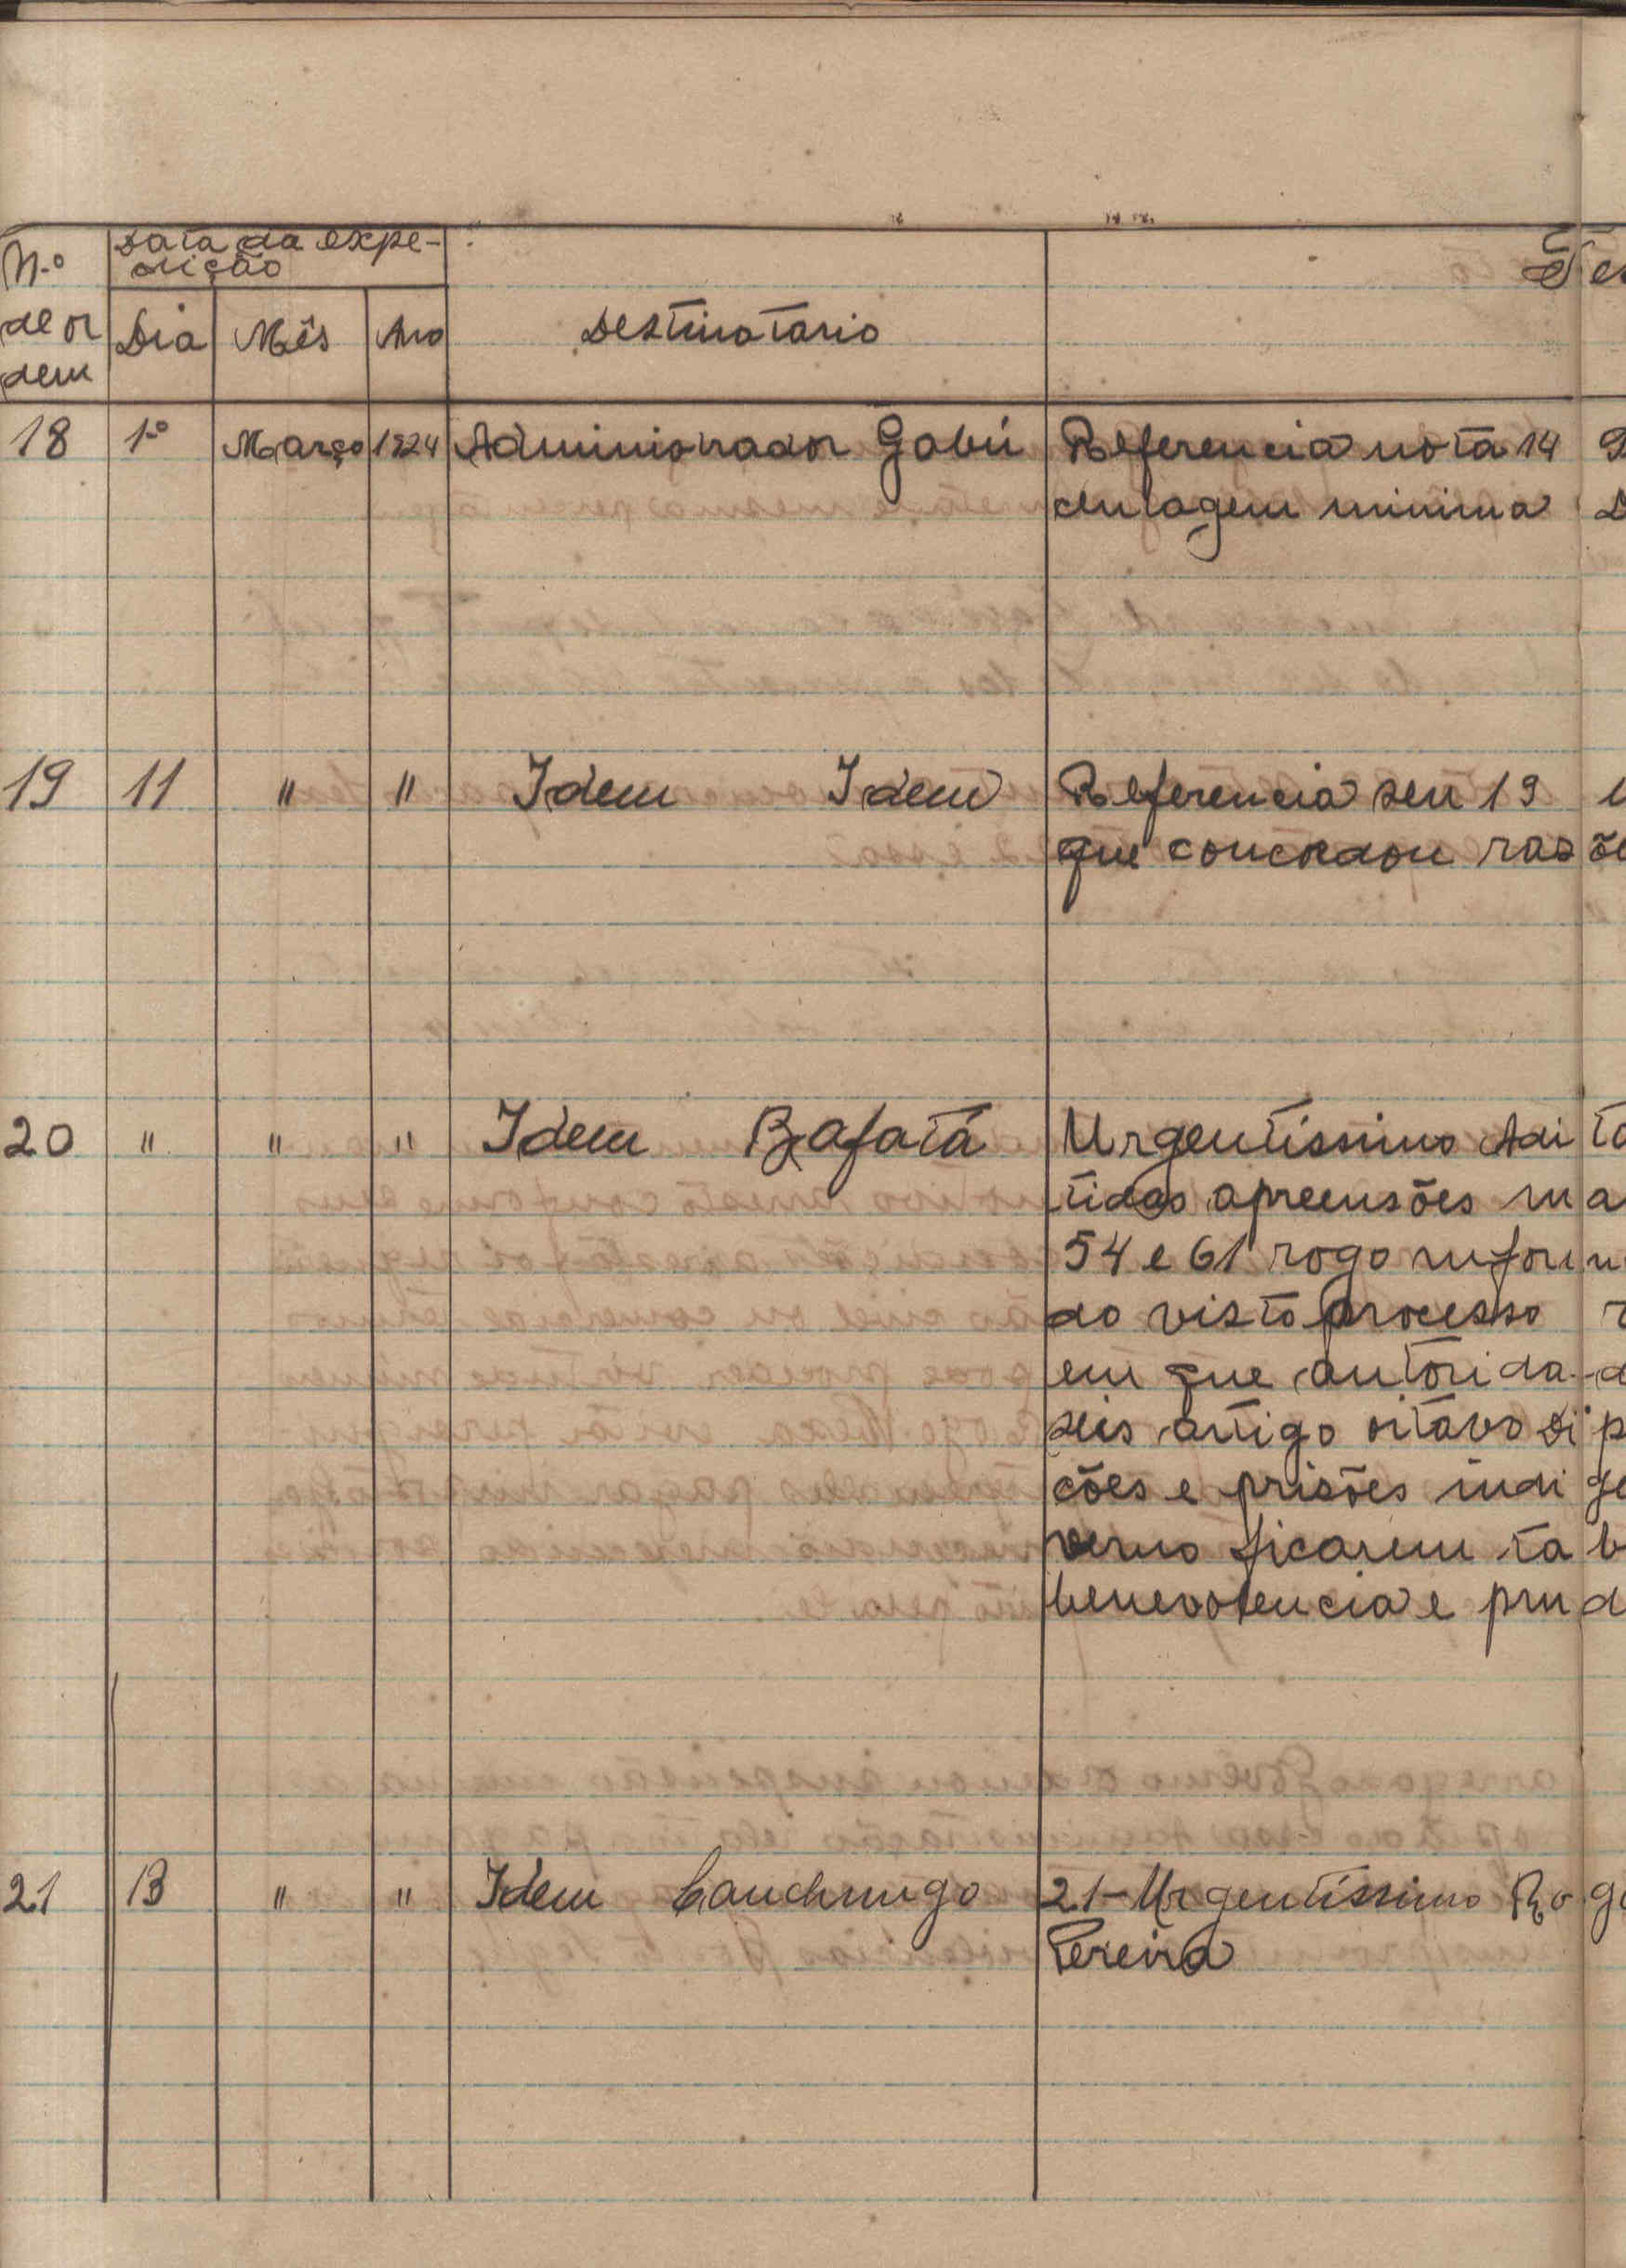 N.º de or dem
Data da expe-
dição
Dia Mês Ano
Destinatario
Te
18 1º Março 1924 Administrador Gabú Referencia nota 14
centagem minima
19 11 " " Idem Idem Referencia seu 19
que concordou rasõe
20 " " " Idem Bafatá Urgentissimo Adi ta
tidas apreensões ma
54 e 61 rogo inform
do visto processo
em que autorida-d
seis artigo oitavo di p
ções e prisões indi ge
verno ficarem ta b
benevolencia e pru d
21 13 " " Idem Canchungo 21-Urgentissimo Ro go
Pereira